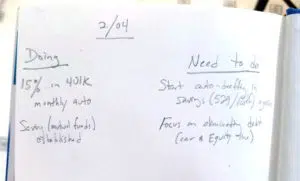 2/04
Doing
15% in 401K
monthly auto
Saving (mutual funds)
established
Need to do
Start auto-drafting in
savings (529/
Focus on eliminating debt
(car & Equity line)